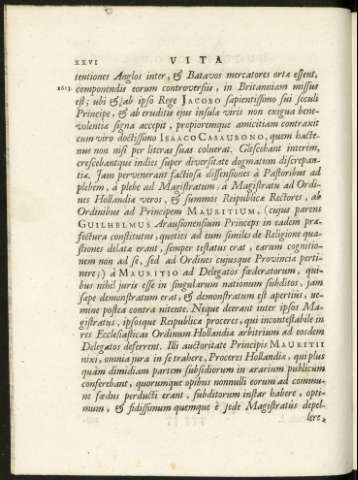 XXVI VITA
tentiones Anglos inter, & Batavos mercatores ortæ essent,
1613. componendis eorum controversiis, in Britanniam missus
est; ubi & ab ipso Rege JACOBO sapientissimo sui seculi
Principe, & ab eruditis ejus insulæ viris non exigua bene-
volentiæ signa accepit, propioremque amicitiam contraxit
cum viro doctissimo ISAACO CASAUBONO, quem hacte-
nus non nisi per literas suas coluerat. Gliscebant interim,
crescebantque indies super diversitate dogmatum discrepan-
tiæ. Jam pervenerant factiosæ dissensiones à Pastoribus ad
plebem, à plebe ad Magistratum, à Magistratu ad Ordi-
nes Hollandiæ veros, & summos Reipublicæ Rectores, ab
Ordinibus ad Principem MAURITIUM, (cujus parens
GUILHELMUS Arausionensium Princeps in eadem præ-
fectura constitutus, quoties ad eum similes de Religione quæ-
stiones delatæ erant, semper testatus erat, earum cognitio-
nem non ad se, sed ad Ordines cujusque Provinciæ perti-
nere;) à MAURITIO ad Delegatos fœderatorum, qui-
bus nihil juris esse in singularum nationum subditos, jam
sæpe demonstratum erat, & demonstratum est apertius, ne-
mine postea contra nitente. Neque deerant inter ipsos Ma-
gistratus, ipsosque Reipublicæ proceres, qui incontestabile in
res Ecclesiasticas Ordinum Hollandiæ arbitrium ad eosdem
Delegatos deferrent. Illi auctoritate Principis MAURITII
nixi, omnia jura in se trahere, Proceres Hollandiæ, qui plus
quàm dimidiam partem subsidiorum in ærarium publicum
conferebant, quorumque opibus nonnulli eorum ad commu-
ne fœdus perducti erant, subditorum instar habere, opti-
mum, & fidissimum quemque è sede Magistratûs depel-
lere,